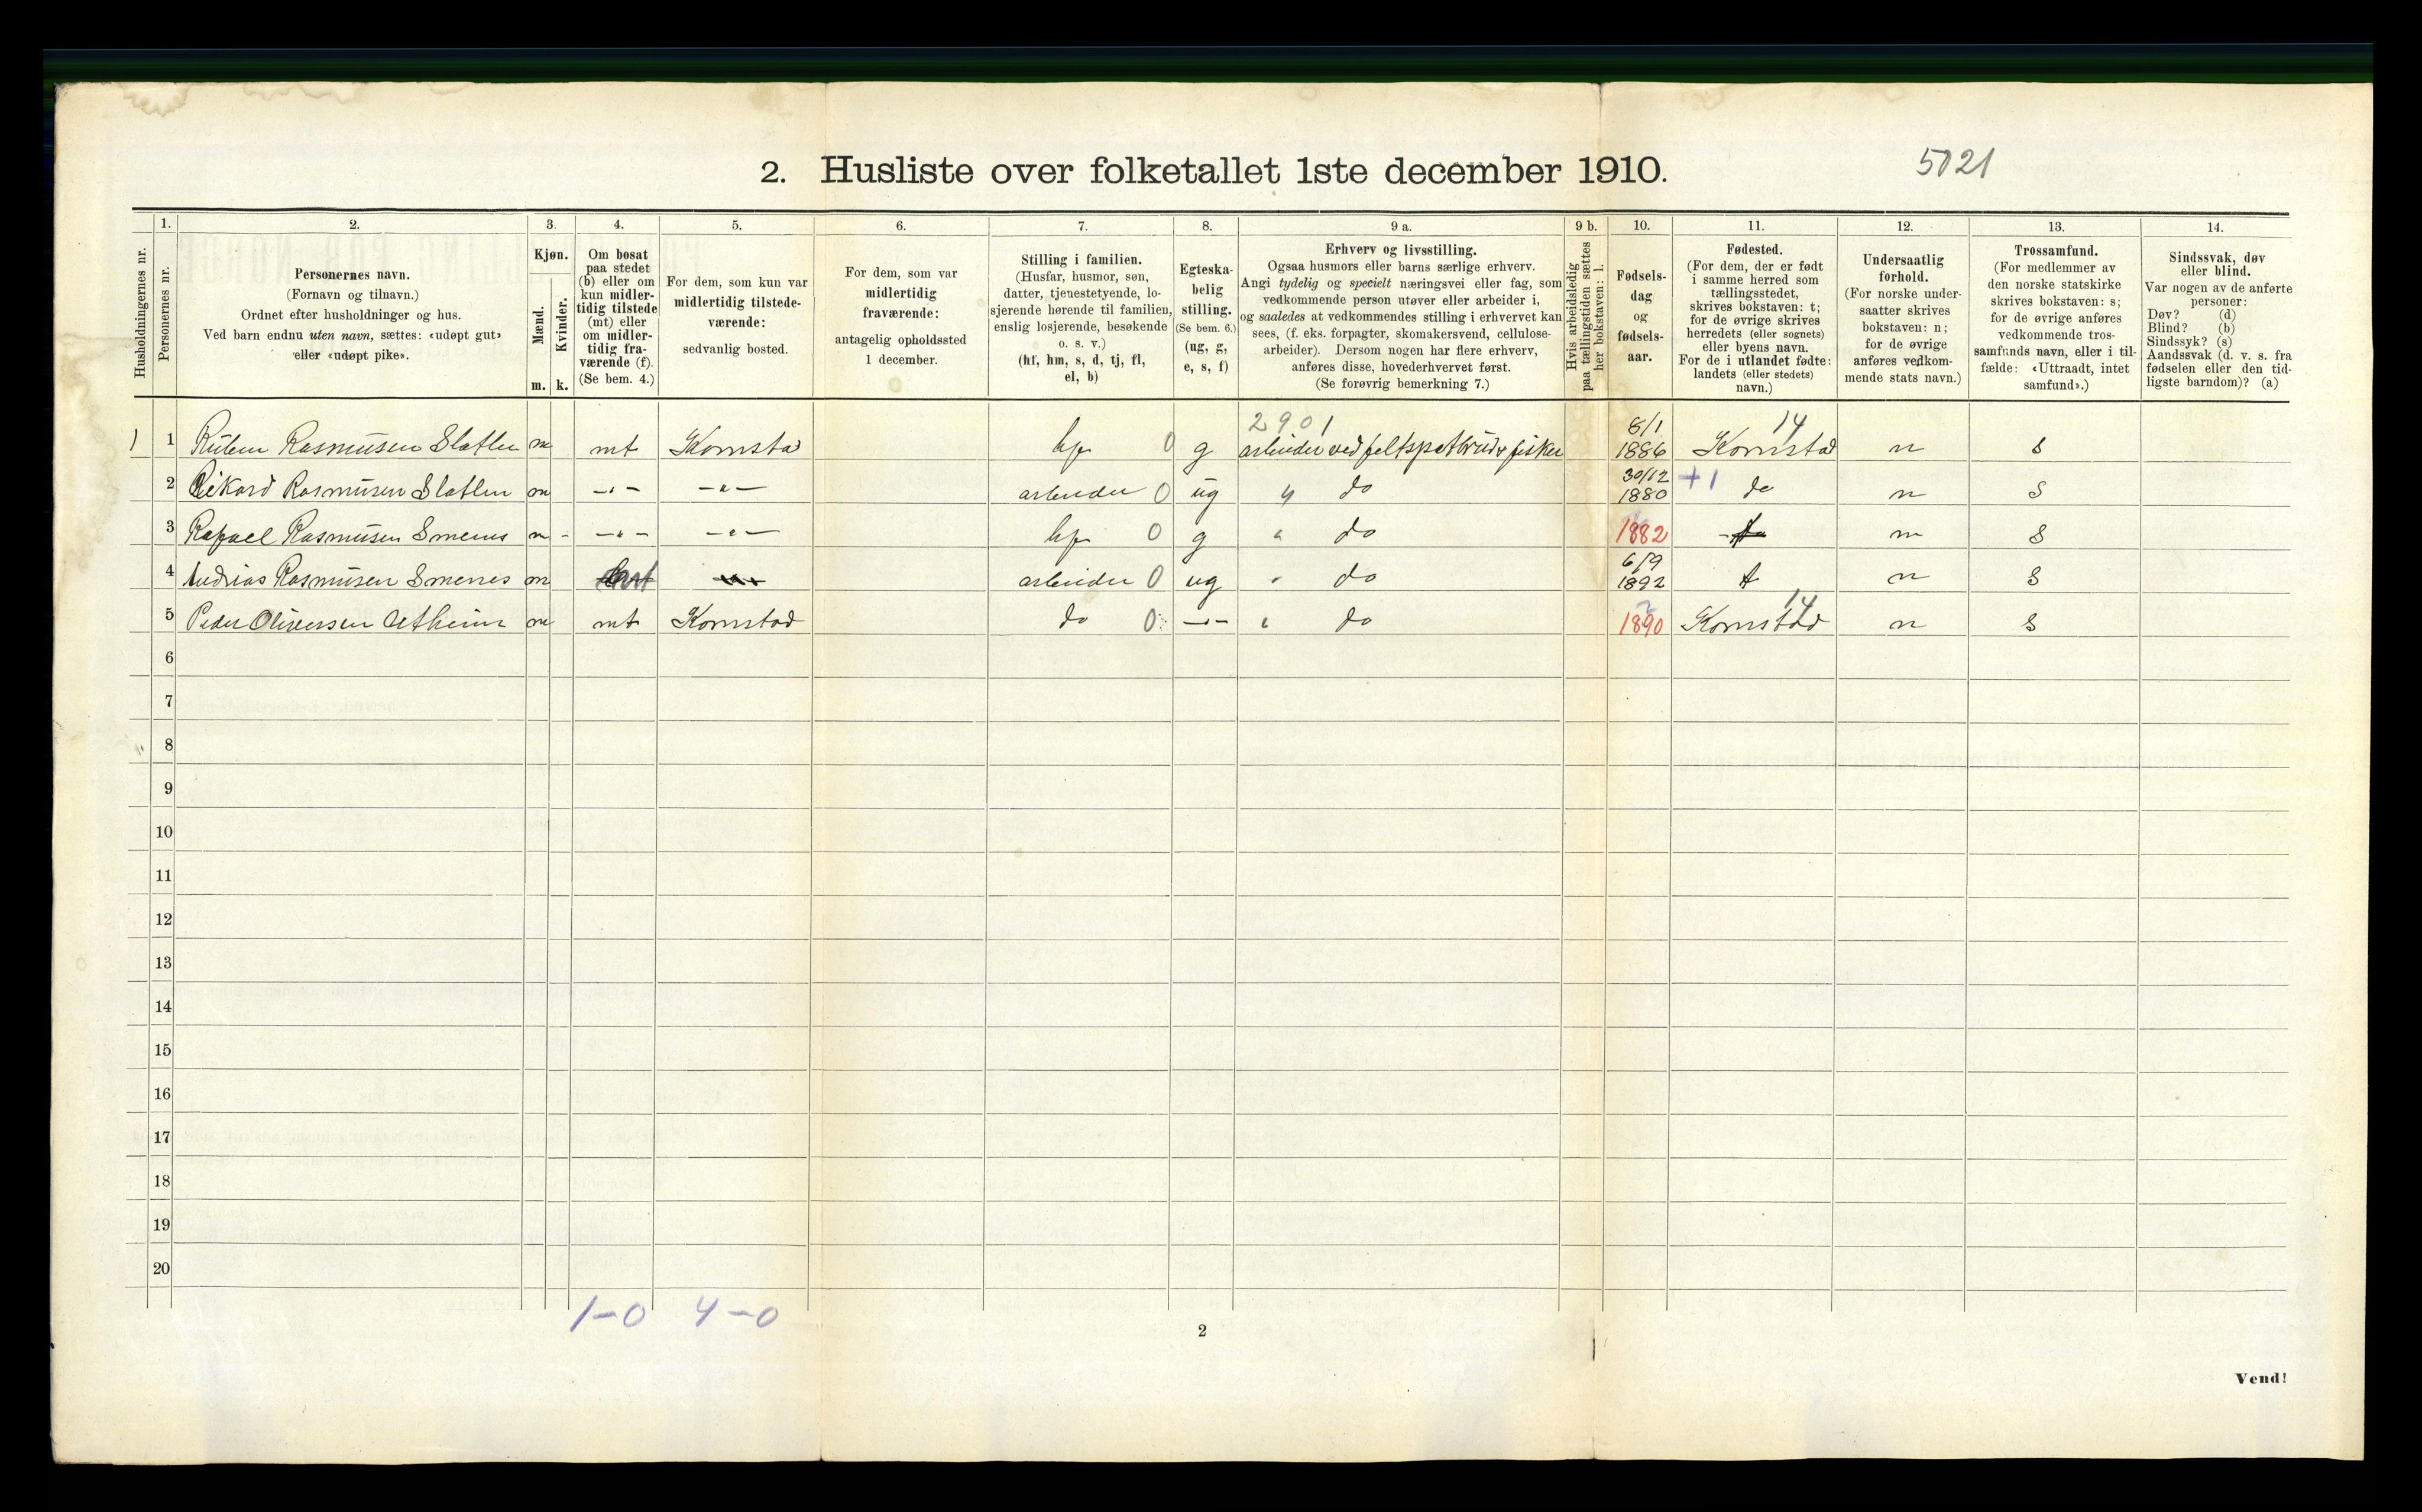 2. Husliste over folketallet 1ste december 1910.
5021
Husholdningernes nr.
1.
Personernes nr.
2.
Personernes navn.
(Fornavn og tilnavn.)
Ordnet efter husholdninger og hus.
Ved barn endnu uten navn, sættes: «udøpt gut»
eller «udøpt pike».
3.
Kjøn.
Mænd.
Kvinder.
m. k.
4.
Om bosat
paa stedet
(b) eller om
kun midler-
tidig tilstede
(mt) eller
om midler-
tidig fra-
værende (f).
(Se bem. 4.)
5.
For dem, som kun var
midlertidig tilstede-
værende:
sedvanlig bosted.
6.
For dem, som var
midlertidig
fraværende:
antagelig opholdssted
1 december.
7.
Stilling i familien.
(Husfar, husmor, søn,
datter, tjenestetyende, lo-
sjerende hørende til familien,
enslig losjerende, besøkende
o. s. v.)
(hf, hm, s, d, tj, fl,
el, b)
8.
Egteska-
belig
stilling.
(Se bem. 6.)
(ug, g,
e, s, f)
9 a.
Erhverv og livsstilling.
Ogsaa husmors eller barns særlige erhverv.
Angi tydelig og specielt næringsvei eller fag, som
vedkommende person utøver eller arbeider i,
og saaledes at vedkommendes stilling i erhvervet kan
sees, (f. eks. forpagter, skomakersvend, cellulose-
arbeider). Dersom nogen har flere erhverv,
anføres disse, hovederhvervet først.
(Se forøvrig bemerkning 7.)
9 b.
Hvis arbeidsledig
paa tællingstiden sættes
her bokstaven: l.
10.
Fødsels-
dag
og
fødsels-
aar.
11.
Fødested.
(For dem, der er født
i samme herred som
tællingsstedet,
skrives bokstaven: t;
for de øvrige skrives
herredets (eller sognets)
eller byens navn.
For de i utlandet fødte:
landets (eller stedets)
navn.)
12.
Undersaatlig
forhold.
(For norske under-
saatter skrives
bokstaven: n;
for de øvrige
anføres vedkom-
mende stats navn.)
13.
Trossamfund.
(For medlemmer av
den norske statskirke
skrives bokstaven: s;
for de øvrige anføres
vedkommende tros-
samfunds navn, eller i til-
fælde: «Uttraadt, intet
samfund».)
14.
Sindssvak, døv
eller blind.
Var nogen av de anførte
personer:
Døv? (d)
Blind? (b)
Sindssyk? (s)
Aandssvak (d. v. s. fra
fødselen eller den tid-
ligste barndom)? (a)
2901 8/1 14
1 1 Ruben Rasmusen Slatlem m mt Kornsta hf 0 g arbeider ved feltspatbrud & fisker 1886 Kornstad n S
30/12
2 Rikard Rasmusen Slatlem m -"- -"- arbeider 0 ug " do 1880 +1 do n S
3 Rafael Rasmusen Smenes m - -"- -"- hf 0 g " do 1882 n S
6/9
4 Andreas Rasmusen Smenes m arbeider 0 ug " do 1892 t n S
14
5 Peder Oliversen Utheim m mt Kornstad do 0 -"- " do 1890 Kornstad n S
6
7
8
9
10
11
12
13
14
15
16
17
18
19
20
1-0 4-0
2
Vend!